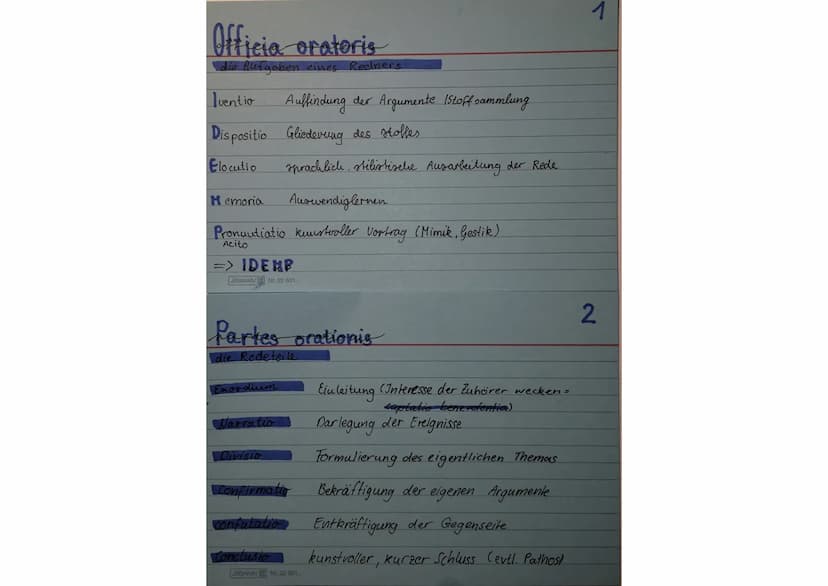 1
Officia oratoris
die Aufgaben eines Redners
Iventio Auffindung der Argumente /Stoffsammlung
Dispositio Gliederung des Stoffes
Elocutio sprachlich stilistische Ausarbeitung der Rede
Memoria Auswendiglernen
Pronuntiatio kunstvoller Vortrag (Mimik, Gestik)
Acito
=> IDEMP
2
Partes orationis
die Redeteile
Exordium Einleitung (Interesse der Zuhörer wecken =
captatio benevolentia)
Narratio Darlegung der Ereignisse
Divisio Formulierung des eigentlichen Themas
Confirmatio Bekräftigung der eigenen Argumente
confutatio Entkräftigung der Gegenseite
Conclusio kunstvoller, kurzer Schluss (evtl. Pathos)